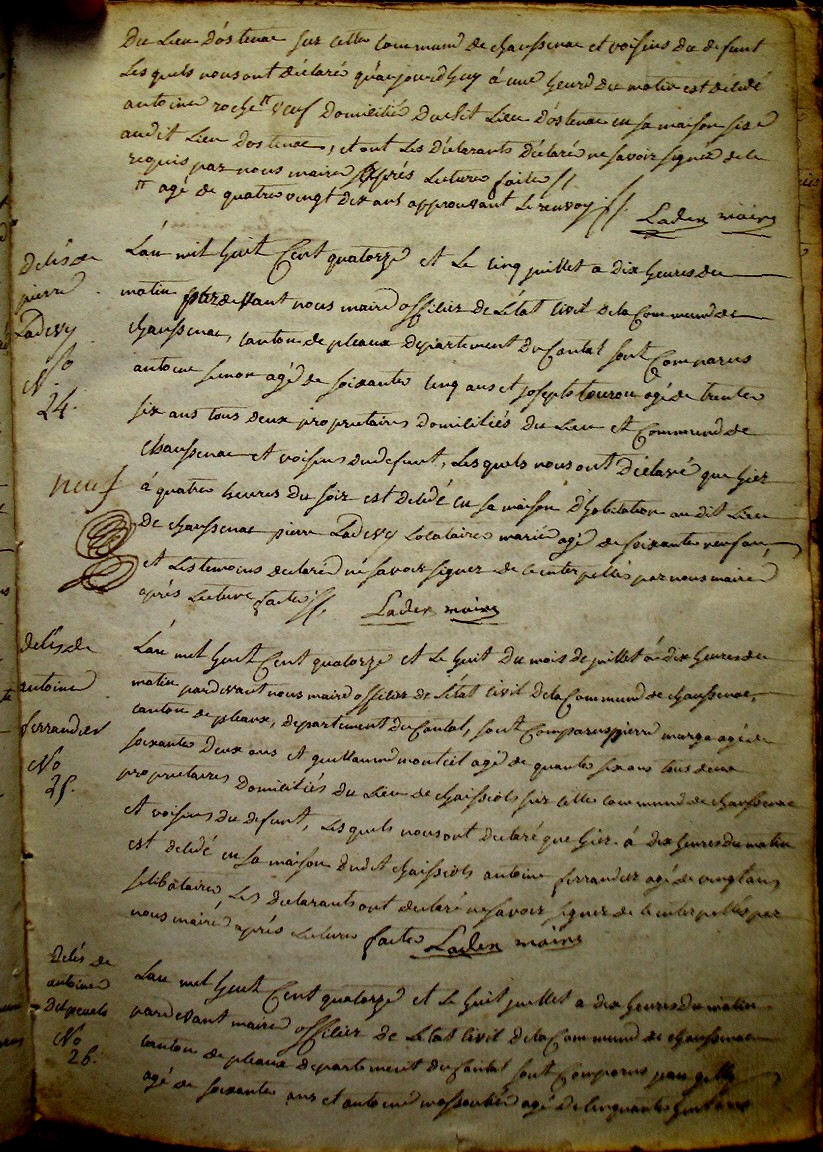 Du Lieu D'ostenac sur cette Commune de chaussenac et voisins du defunt
Les quels nous ont déclaré qu'aujourd'huy à une heure du matin est décédé
antoine roche tt veuf Domicilié Dudit Lieu D'ostenac en sa maison sise
audit Lieu Dostenac, et ont Les Déclarants Déclaré ne savoir signer de ce
requis par nous maire après Lecture faite //
tt agé de quatre vingt dix ans approuvant Le renvoy //. Laden maire
décés de
pierre
Ladevy
No
24.
neuf
L'an mil huit Cent quatorze et Le cinq juillet a dix heures du
matin pardevant nous maire officier de L'état Civil de la Commune de
chaussenac, canton de pleaux Departement Du Cantal sont Comparus
antoine simon agé de soixante cinq ans et joseph tourou agé de trente
six ans tous deux proprietaires Domiciliés du Lieu et Commune de
chaussenac et voisins du defunt, Les quels nous ont Déclaré que hier
à quatre heures du soir est décédé en sa maison D'habitation au dit Lieu
De chaussenac pierre Ladevy Locataire marié agé de soixante neuf ans,
et Les temoins declaré ne savoir signer de ce interpellés par nous maire
après Lecture faite //. Laden maire
décés de
antoine
ferrandez
No
25.
L'an mil huit Cent quatorze et Le huit Du mois de juillet à dix heures du
matin pardevant nous maire officier de L'état Civil de la Commune de chaussenac,
canton de pleaux, departement du Cantal, sont Comparus pierre marga agé de
soixante Deux ans et guillaume montcil agé de quante six ans tous deux
proprietaires Domiciliés du Lieu de chaissiols sur cette commune de chaussenac
et voisins du defunt, Les quels nous ont declaré que hier à dix heures du matin
est décédé en sa maison dudit chaissiols antoine ferrandez agé de vingt ans
selibataire, Les declarants ont declaré ne savoir signer de ce interpellés par
nous maire après Lecture faite Laden maire
Décés de
antoine
Delpeuch
No
26.
L'an mil huit Cent quatorze et Le huit juillet a dix heures du matin
pardevant maire officier de L'état Civil de la Commune de chaussenac
canton de pleaux departement du Cantal sont Comparus jean
agé de soixante ans et antoine agé de cinquante huit ans